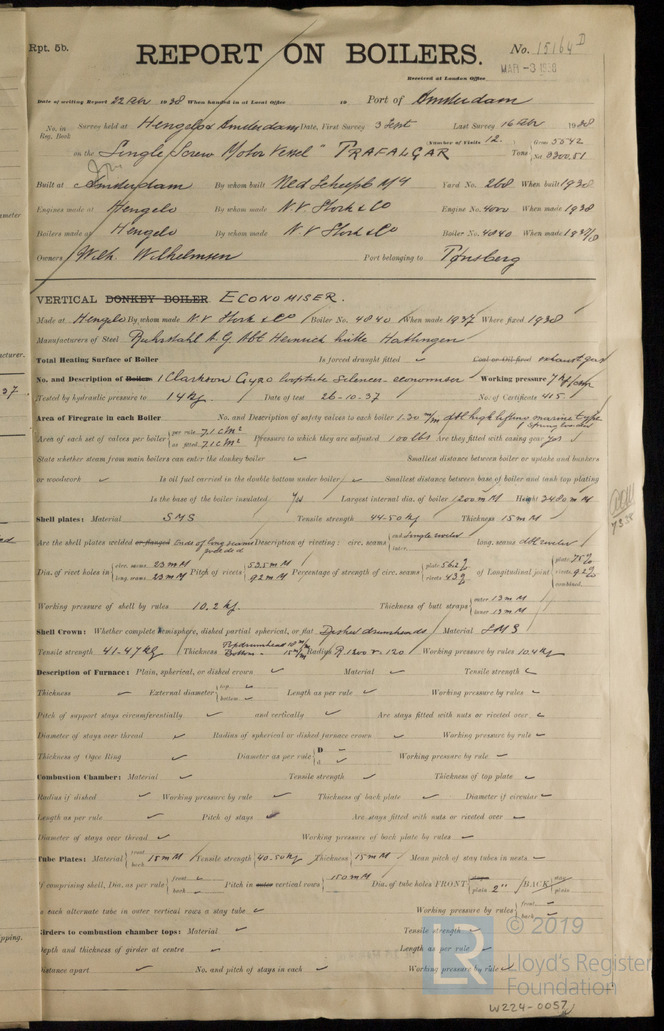 Rpt. 5b.
REPORT ON BOILERS.
No. 15164 D
MAR -3 1938
Received at London Office
Date of writing Report 22 Feb 1938 When handed in at Local Office 19 Port of Amsterdam
No. in Reg. Book Survey held at Hengelo & Amsterdam Date, First Survey 3 Sept Last Survey 16 Feb 1938
(Number of Visits 12.)
on the Single Screw Motor Vessel "TRAFALGAR Tons Gross 5542 Net 3300.51
Built at Amsterdam By whom built Ned Scheepb Mij Yard No. 268 When built 1938
Engines made at Hengelo By whom made N.V. Stork & Co Engine No. 4000 When made 1938
Boilers made at Hengelo By whom made N.V. Stork & Co Boiler No. 4840 When made
Owners Wilh. Wilhelmsen Port belonging to Tønsberg
VERTICAL DONKEY BOILER ECONOMISER.
Made at Hengelo By whom made N.V. Stork & Co Boiler No. 4840 When made 1937 Where fixed 1938
Manufacturers of Steel Ruhrstahl A.G. Abt Heinrich hütte Hattingen
Total Heating Surface of Boiler Is forced draught fitted ✓ Coal or Oil fired exhaust gas
No. and Description of Boilers 1 Clarkson Gyro Silencer-economiser Working pressure 7 kg/cm
Tested by hydraulic pressure to 14 Kg. Date of test 26-10-37 No. of Certificate 415.
Area of Firegrate in each Boiler No. and Description of safety valves to each boiler 1.30 m/m dbl high lifting marine type
1 spring loaded
Area of each set of valves per boiler per rule 7.1 CM² as fitted 7.1 CM² Pressure to which they are adjusted 100 lbs Are they fitted with easing gear yes
State whether steam from main boilers can enter the donkey boiler ✓ Smallest distance between boiler or uptake and bunkers
or woodwork ✓ Is oil fuel carried in the double bottom under boiler ✓ Smallest distance between base of boiler and tank top plating
Is the base of the boiler insulated. Yes Largest internal dia. of boiler 1200 mM Height 2480 mM
Shell plates: Material SMS Tensile strength 44-50 Kg Thickness 15 mM
Are the shell plates welded or flanged Ends of long seams welded Description of riveting: circ. seams end single riveted inter. long. seams dbl riveted
Dia. of rivet holes in circ. seams 23 mM long. seams 23 mM Pitch of rivets 53.5 mM 92 mM Percentage of strength of circ. seams plate 56.2% rivets 43% of Longitudinal joint plate 75% rivets 92% combined
Working pressure of shell by rules 10.2 kg. Thickness of butt straps outer 13 mM inner 13 mM
Shell Crown: Whether complete hemisphere, dished partial spherical, or flat Dished drumheads Material SMS
Tensile strength 41-47 Kg Thickness Top drumhead 18 m/m Bottom " 15 m/m Radius R. 1200 r. 120 Working pressure by rules 10.4 Kg
Description of Furnace: Plain, spherical, or dished crown ✓ Material ✓ Tensile strength ✓
Thickness ✓ External diameter top bottom Length as per rule ✓ Working pressure by rules ✓
Pitch of support stays circumferentially ✓ and vertically ✓ Are stays fitted with nuts or riveted over ✓
Diameter of stays over thread ✓ Radius of spherical or dished furnace crown ✓ Working pressure by rule ✓
Thickness of Ogee Ring ✓ Diameter as per rule D d Working pressure by rule ✓
Combustion Chamber: Material ✓ Tensile strength ✓ Thickness of top plate ✓
Radius if dished ✓ Working pressure by rule ✓ Thickness of back plate ✓ Diameter if circular ✓
Length as per rule ✓ Pitch of stays ✓ Are stays fitted with nuts or riveted over ✓
Diameter of stays over thread ✓ Working pressure of back plate by rules ✓
Tube Plates: Material front back 15 mM Tensile strength 40-50 Kg Thickness 15 mM Mean pitch of stay tubes in nests ✓
If comprising shell, Dia. as per rule front back Pitch in outer vertical rows 150 mM Dia. of tube holes FRONT stay plain 2" BACK stay plain
Is each alternate tube in outer vertical rows a stay tube ✓ Working pressure by rules front back
Girders to combustion chamber tops: Material ✓ Tensile strength ✓
Depth and thickness of girder at centre ✓ Length as per rule ✓
Distance apart ✓ No. and pitch of stays in each ✓ Working pressure by rule ✓
© 2019
LR
Lloyd's Register
Foundation
W224-0057